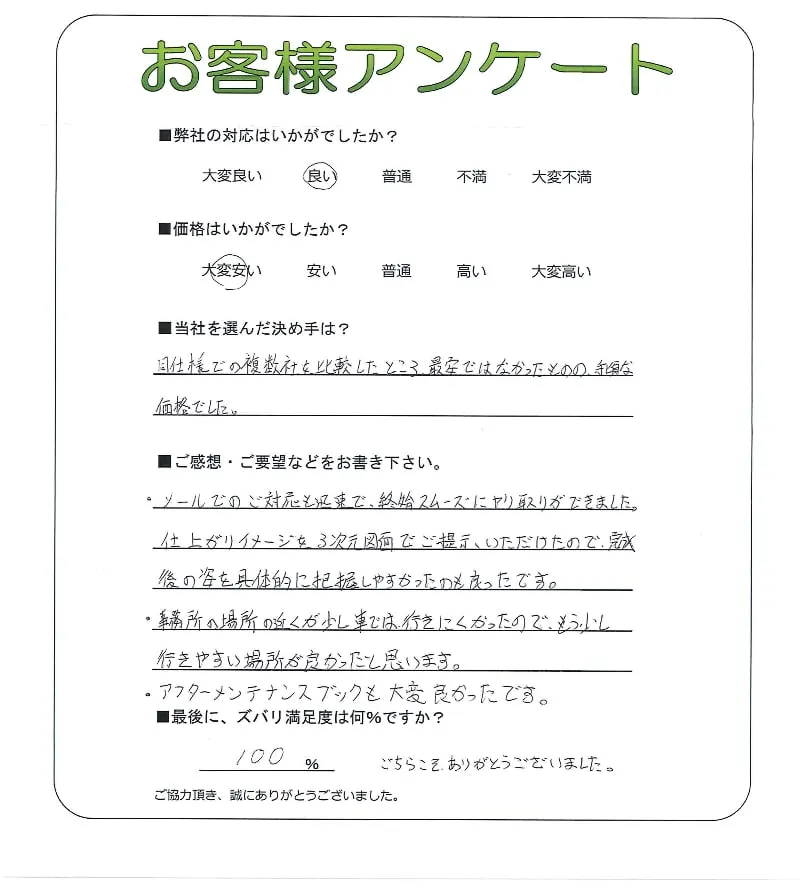 お客様アンケート
■弊社の対応はいかがでしたか？
大変良い 良い 普通 不満 大変不満
■価格はいかがでしたか？
大変安い 安い 普通 高い 大変高い
■当社を選んだ決め手は？
同仕様での複数社を比較したところ、最安ではなかったものの、手頃な
価格でした。
■ご感想・ご要望などをお書き下さい。
・メールでのご対応も迅速で、終始スムーズにやり取りができました。
仕上がりイメージを、3次元図面でご提示、いただけたので、完成
後の姿を具体的に把握しやすかったのも良ったです。
・事務所の場所の近くが少し車では、行きにくかったので、もう少し
行きやすい場所が良かったと思います。
・アフターメンテナンスブックも大変良かったです。
■最後に、ズバリ満足度は何%ですか？
100 % こちらこそ、ありがとうございました。
ご協力頂き、誠にありがとうございました。